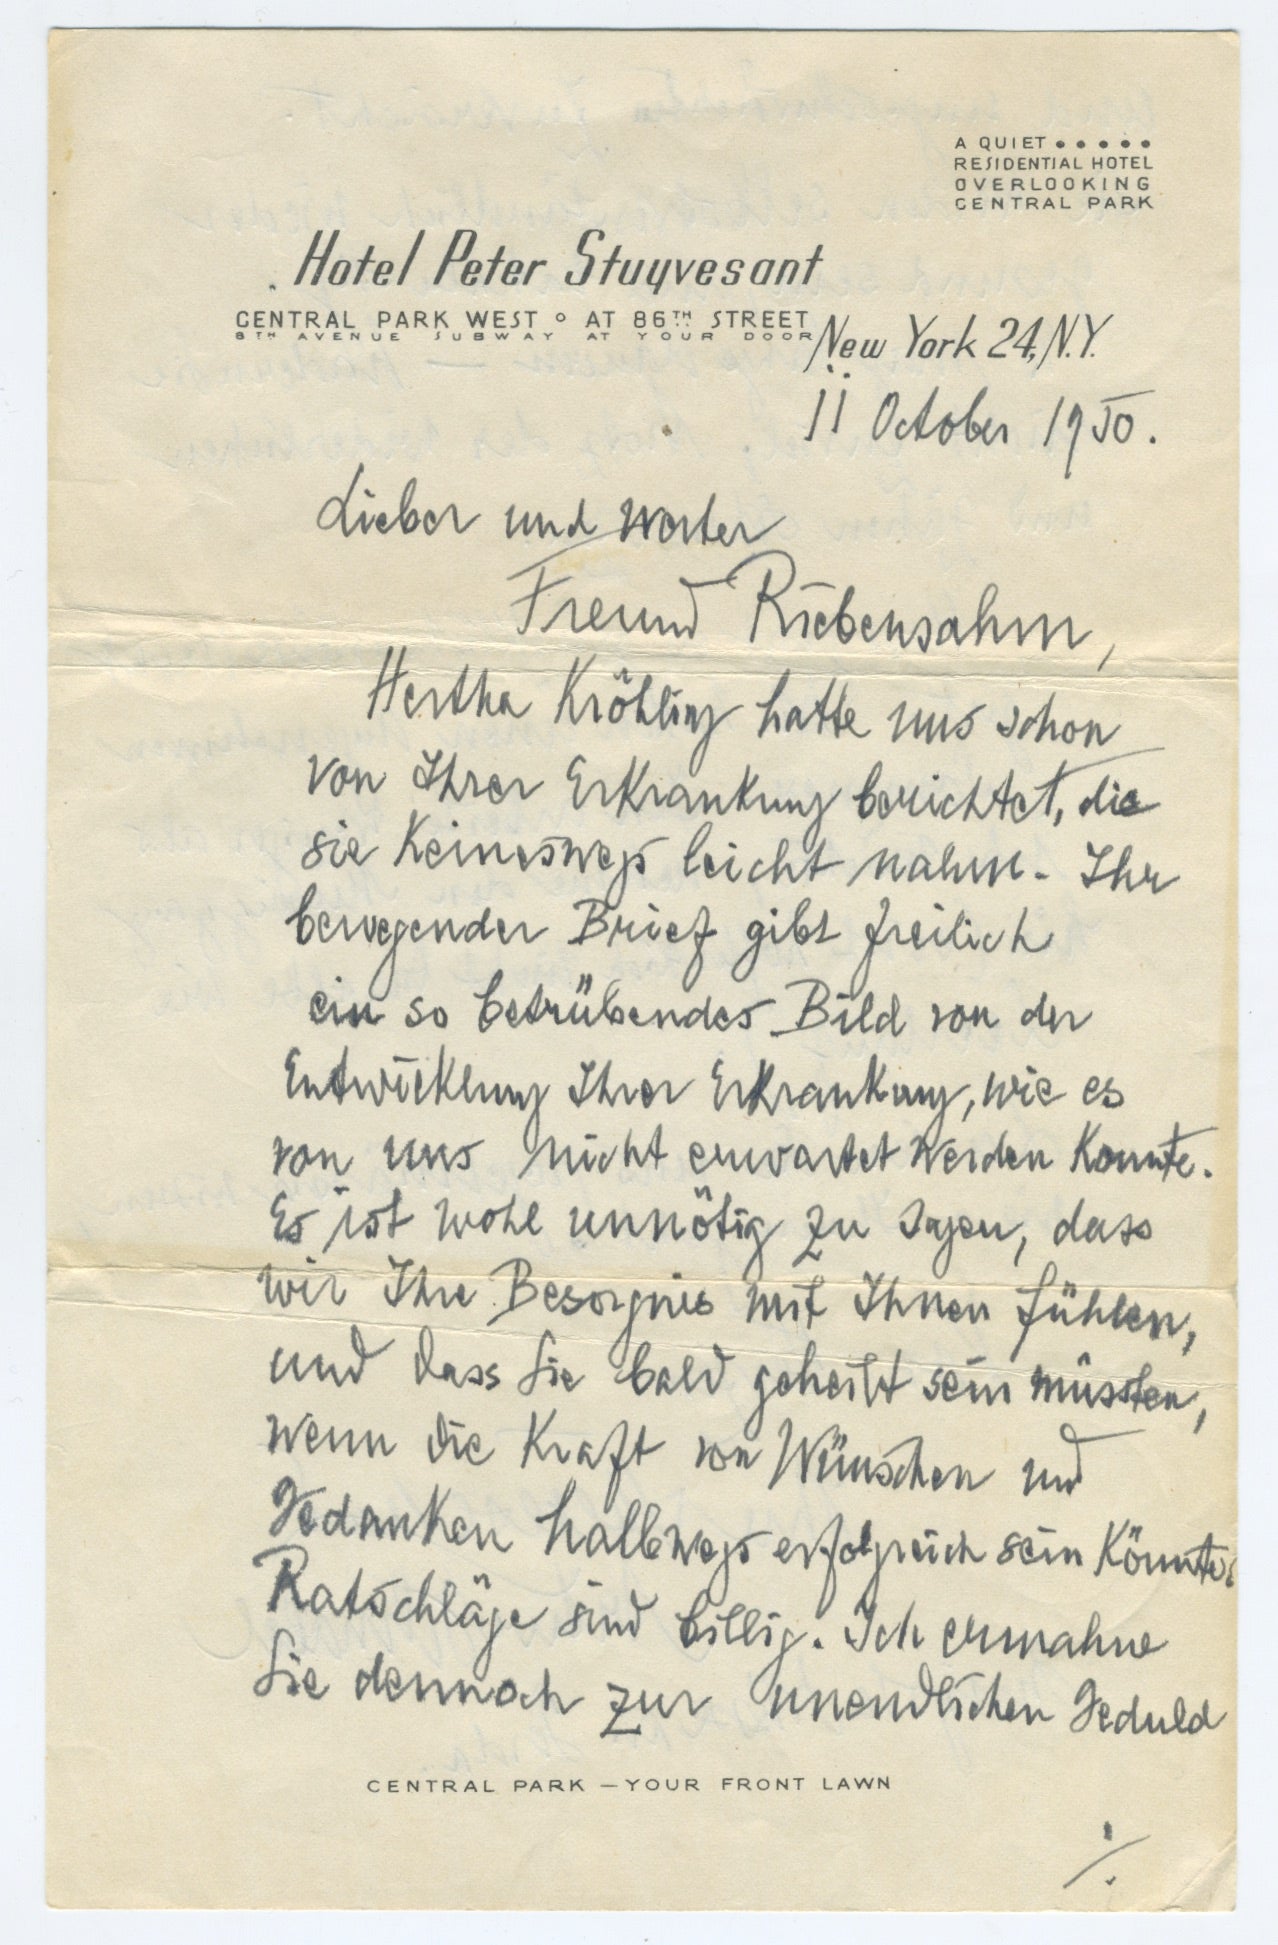 A QUIET • • • • •
RESIDENTIAL HOTEL
OVERLOOKING
CENTRAL PARK
Hotel Peter Stuyvesant
CENTRAL PARK WEST ° AT 86TH STREET
8TH AVENUE SUBWAY AT YOUR DOOR
New York 24, N.Y.
11 October 1950.
Lieber und werter
Freund Riebensahm,
Hertha Kröhling hatte uns schon
von Ihrer Erkrankung berichtet, die
sie Keineswegs leicht nahm. Ihr
bewegender Brief gibt freilich
ein so betrübendes Bild von der
Entwicklung Ihrer Erkrankung, wie es
von uns nicht erwartet werden Konnte.
Es ist wohl unnötig zu sagen, dass
wir Ihre Besorgnis mit Ihnen fühlen,
und dass Sie bald geheilt sein müssten,
wenn die Kraft von Wünschen und
Gedanken halbwegs erfolgreich sein Könnte.
Ratschläge sind billig. Ich ermahne
Sie dennoch zur unendlichen Geduld
CENTRAL PARK — YOUR FRONT LAWN
./.